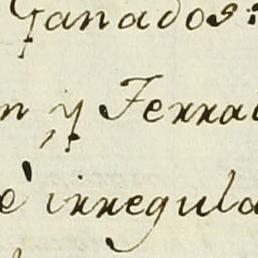 Ganados:
n y Ferra
e irregula